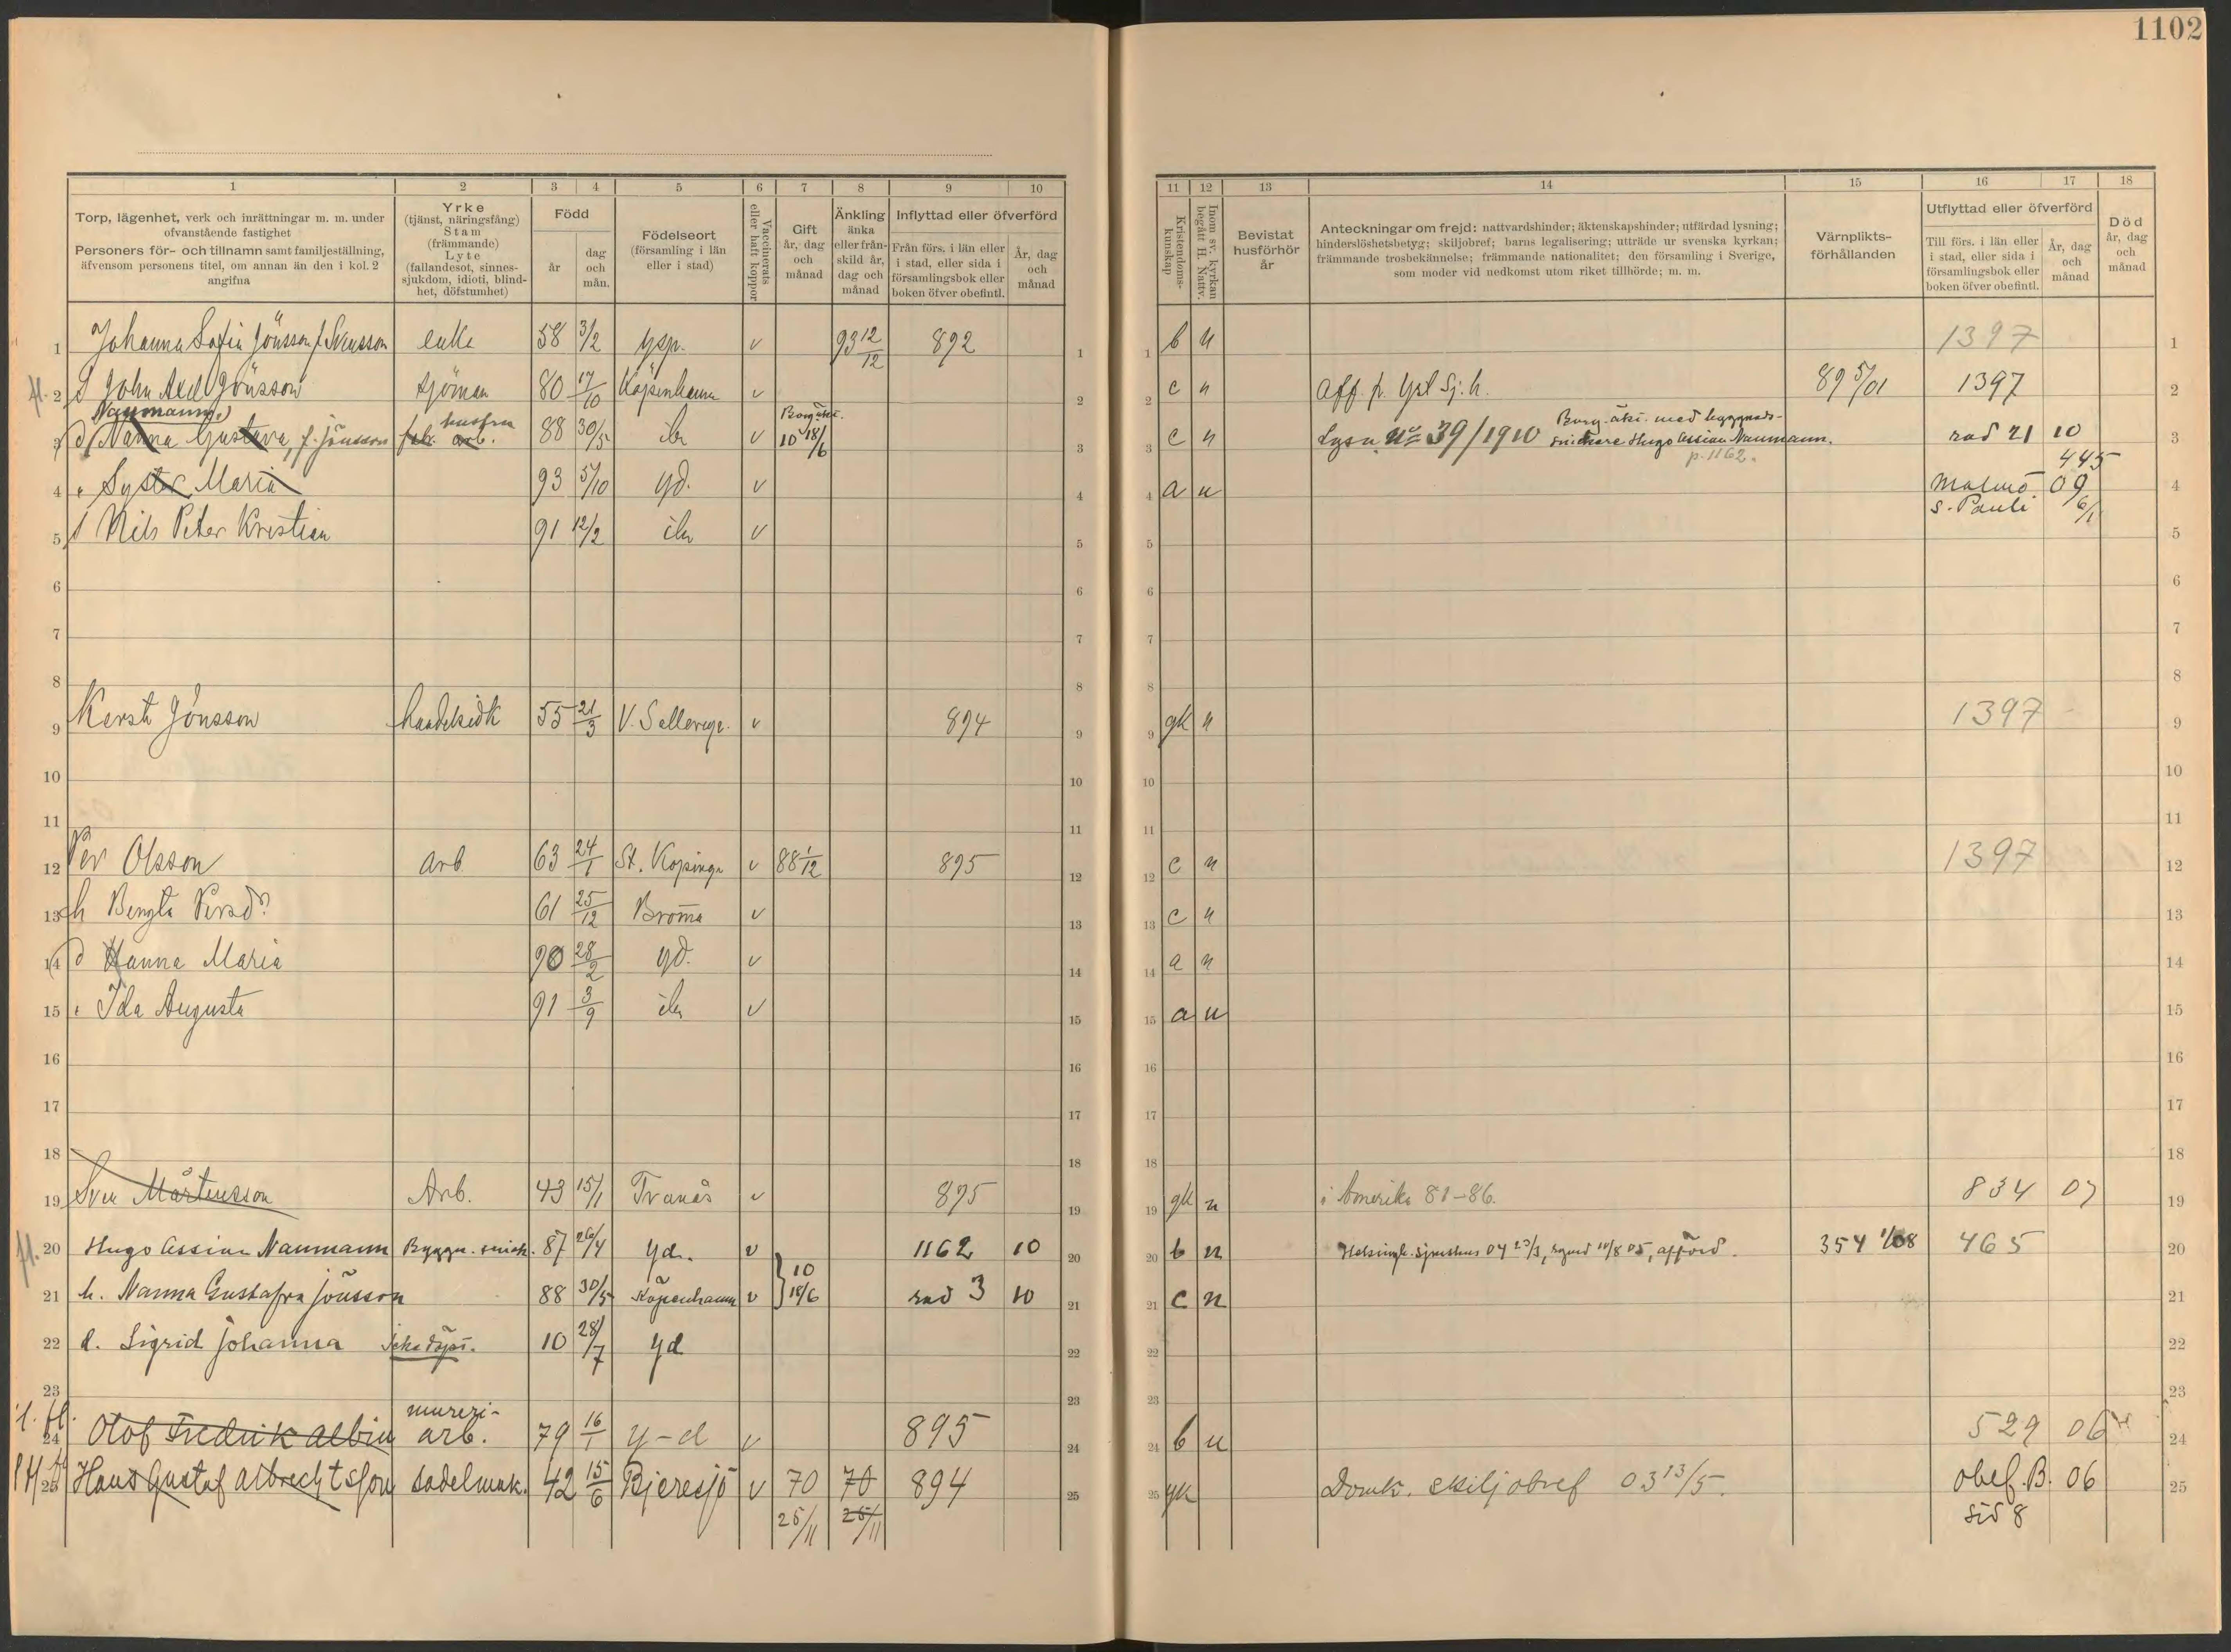 1102
1 2 3 4 5 6 7 8 9 10
Torp, lägenhet, verk och inrättningar m. m. under
ofvanstående fastighet
Personers för- och tillnamn samt familjeställning,
äfvensom personens titel, om annan än den i kol. 2
angifna
Yrke
(tjänst, näringsfång)
Stam
(främmande)
Lyte
(fallandesot, sinnes-
sjukdom, idioti, blind-
het, döfstumhet)
Född
år
dag
och
mån.
Födelseort
(församling i län
eller i stad)
Vaccinerats
eller haft koppor
Gift
år, dag
och
månad
Änkling
änka
eller från-
skild år,
dag och
månad
Inflyttad eller öfverförd
Från förs. i län eller
i stad, eller sida i
församlingsbok eller
boken öfver obefintl.
År, dag
och
månad
11 12 13 14 15 16 17 18
Kristendoms-
kunskap
Inom sv. kyrkan
begått H. Nattv.
Bevistat
husförhör
år
Anteckningar om frejd: nattvardshinder; äktenskapshinder; utfärdad lysning;
hinderslöshetsbetyg; skiljobref; barns legalisering; utträde ur svenska kyrkan;
främmande trosbekännelse; främmande nationalitet; den församling i Sverige,
som moder vid nedkomst utom riket tillhörde; m. m.
Värnplikts-
förhållanden
Utflyttad eller öfverförd
Till förs. i län eller
i stad, eller sida i
församlingsbok eller
boken öfver obefintl.
År, dag
och
månad
Död
år, dag
och
månad
1 Johanna Sofia Jönsson f. Svensson enka 58 3/2 ysp. v 93 12/12 892 1 b n 1397 1
2 S John Axel Jönsson sjöman 80 17/10 Köpenhamn v 2 c n Aff. p. Yst Sj. h. 89 5/01 1397 2
Naumann
hustru
3 d Nanna Gustava, f. Jönsson fab. arb. 88 30/5 ib v Borg. äkt. 10 18/6 3 c n Lysn. No 39/1910 Borg. äkt. med byggnads-
snickare Hugo Cssian Naumann. rad 21 10 3
p. 1162.
4 " Syster Maria 93 5/10 yd. v 4 a u Malmö 09 445 4
S. Pauli 6/1
5 S Nils Peter Kristian 91 12/2 ib v 5
6
7
8
9 Kersti Jönsson handelsidk 55 21/3 V. Sallerup. v 894 9 gk n 1397 9
10
11
12 Per Olsson arb 63 24/1 St. Köpinge v 88 1/12 895 12 c n 1397 12
13 h Bengta Persdr 61 25/12 Broma v 13 c n 13
14 d Hanna Maria 90 28/2 yd. v 14 a n 14
15 " Ida Augusta 91 3/9 ib v 15 a u 15
16
17
18
19 Sven Mårtensson Arb. 43 15/1 Tranås v 895 19 gk n i Amerika 81-86. 834 07 19
20 Hugo Cssian Naumann Byggn. snick. 87 26/4 yd. v 1162 10 20 b n Helsingb. sjukhus 04 23/3, 10/8 05, afförd. 354 1/08 465 20
21 h. Nanna Gustafva Jönsson 88 30/5 Köpenhamn v 10 18/6 rad 3 10 21 c n 21
22 d. Sigrid Johanna Icke döpt. 10 28/7 yd 22
23
24 Olof Fredrik Albin mureri-
arb. 79 16/1 y-d v 895 24 b u 529 06 24
25 Hans Gustaf Albrechtsson sadelmak. 42 15/6 Bjeresjö v 70 25/11 70 25/11 894 25 gk Domk. skiljobref 03 13/5. obef. B. 06 25
sid 8